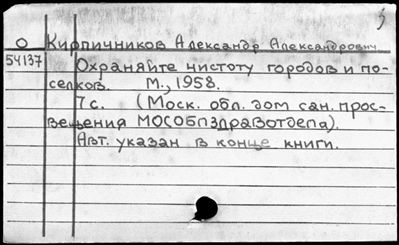 О Кирпичников Александр Александрович
54137 Охраняйте чистоту городов и по-
селков. М., 1958.
7 с. (Моск. обл. дом сан. прос-
вещения МОСОблздравотдела).
Авт. указан в конце книги.